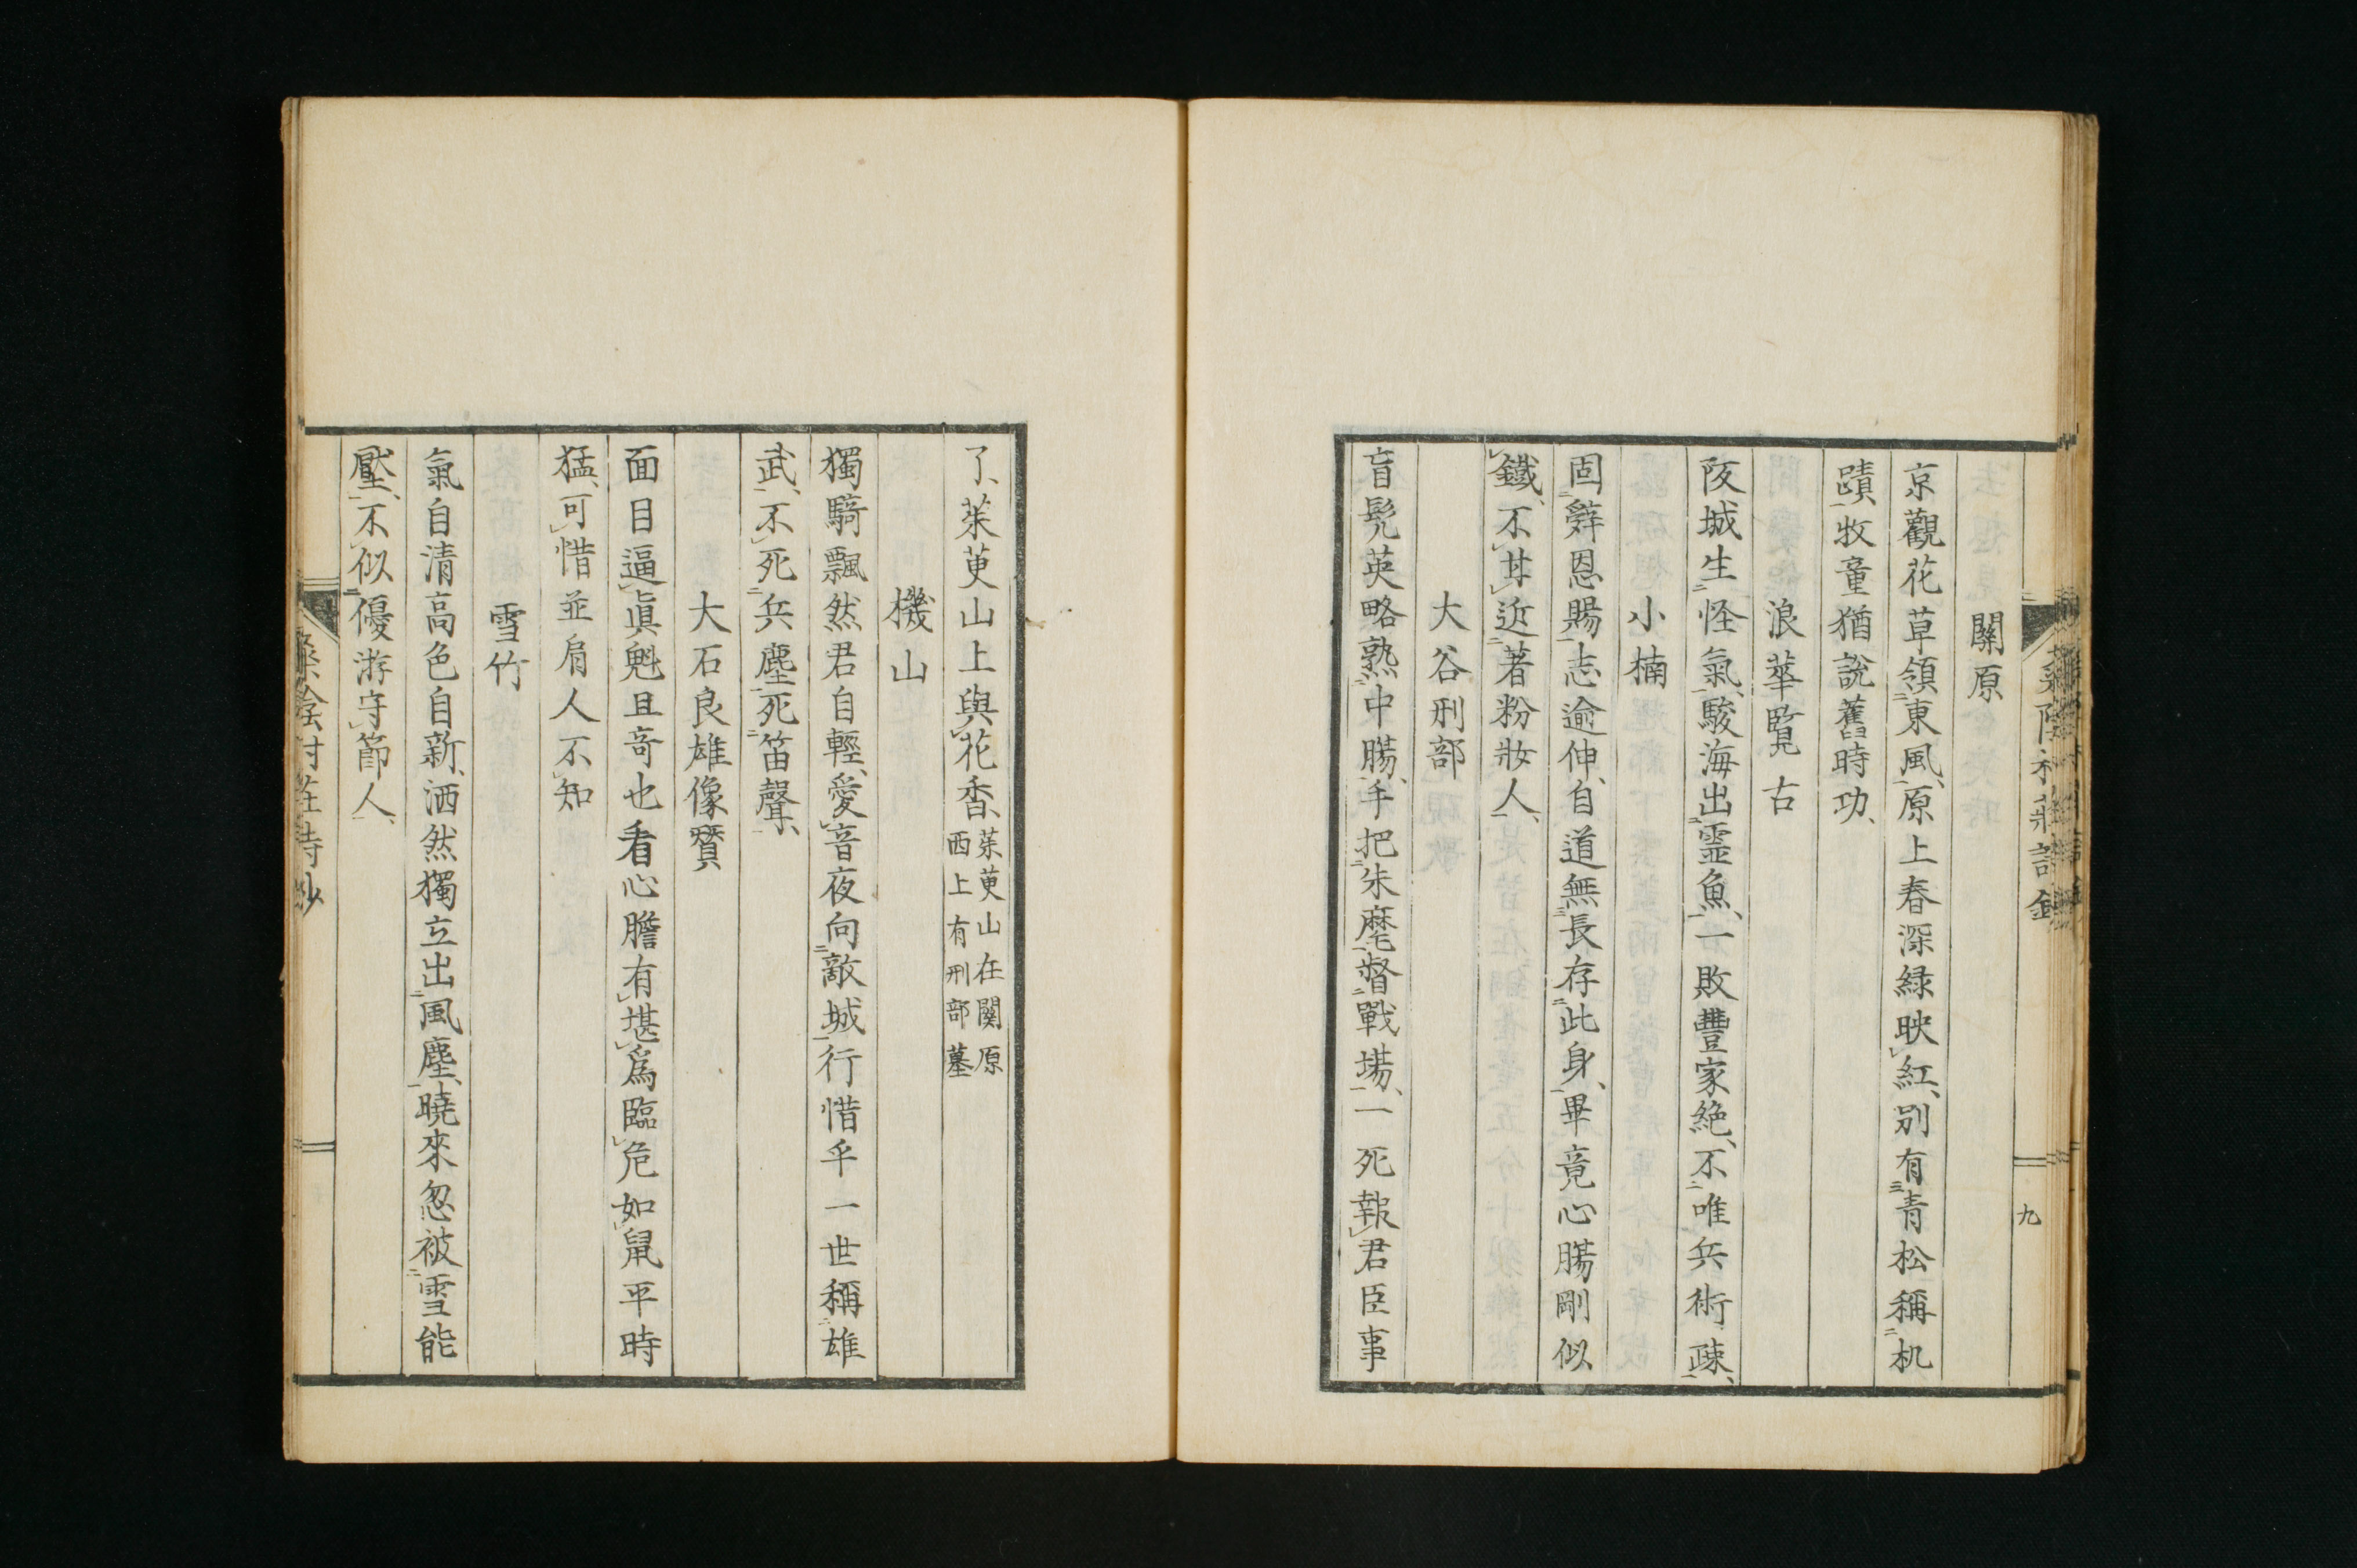 關原
京觀花草領東風、原上春深緑映紅、別有青松稱机
蹟、牧童猶說舊時功、
浪華覽古
阪城生怪氣、駿海出霊魚、一敗豐家絶、不唯兵術疎、
小楠
固辤恩賜志逾伸、自道無長存此身、畢竟心腸剛似
鐵、不甘近著粉妝人、
大谷刑部
盲髡英略熟中腸、手把朱麾督戰場、一死報君臣事
九
了、茱萸山上與花香、茱萸山在關原
西上有刑部墓
機山
獨騎飄然君自輕、愛音夜向敵城行惜乎一世稱雄
武、不死兵塵死笛聲、
大石良雄像贊
面目逼眞魁且奇也看心膽有堪爲臨危如鼠平時
猛、可惜並肩人不知
雪竹
氣自清高色自新、洒然獨立出風塵、曉來忽被雪能
壓、不似優游守節人、
村荘詩鈔